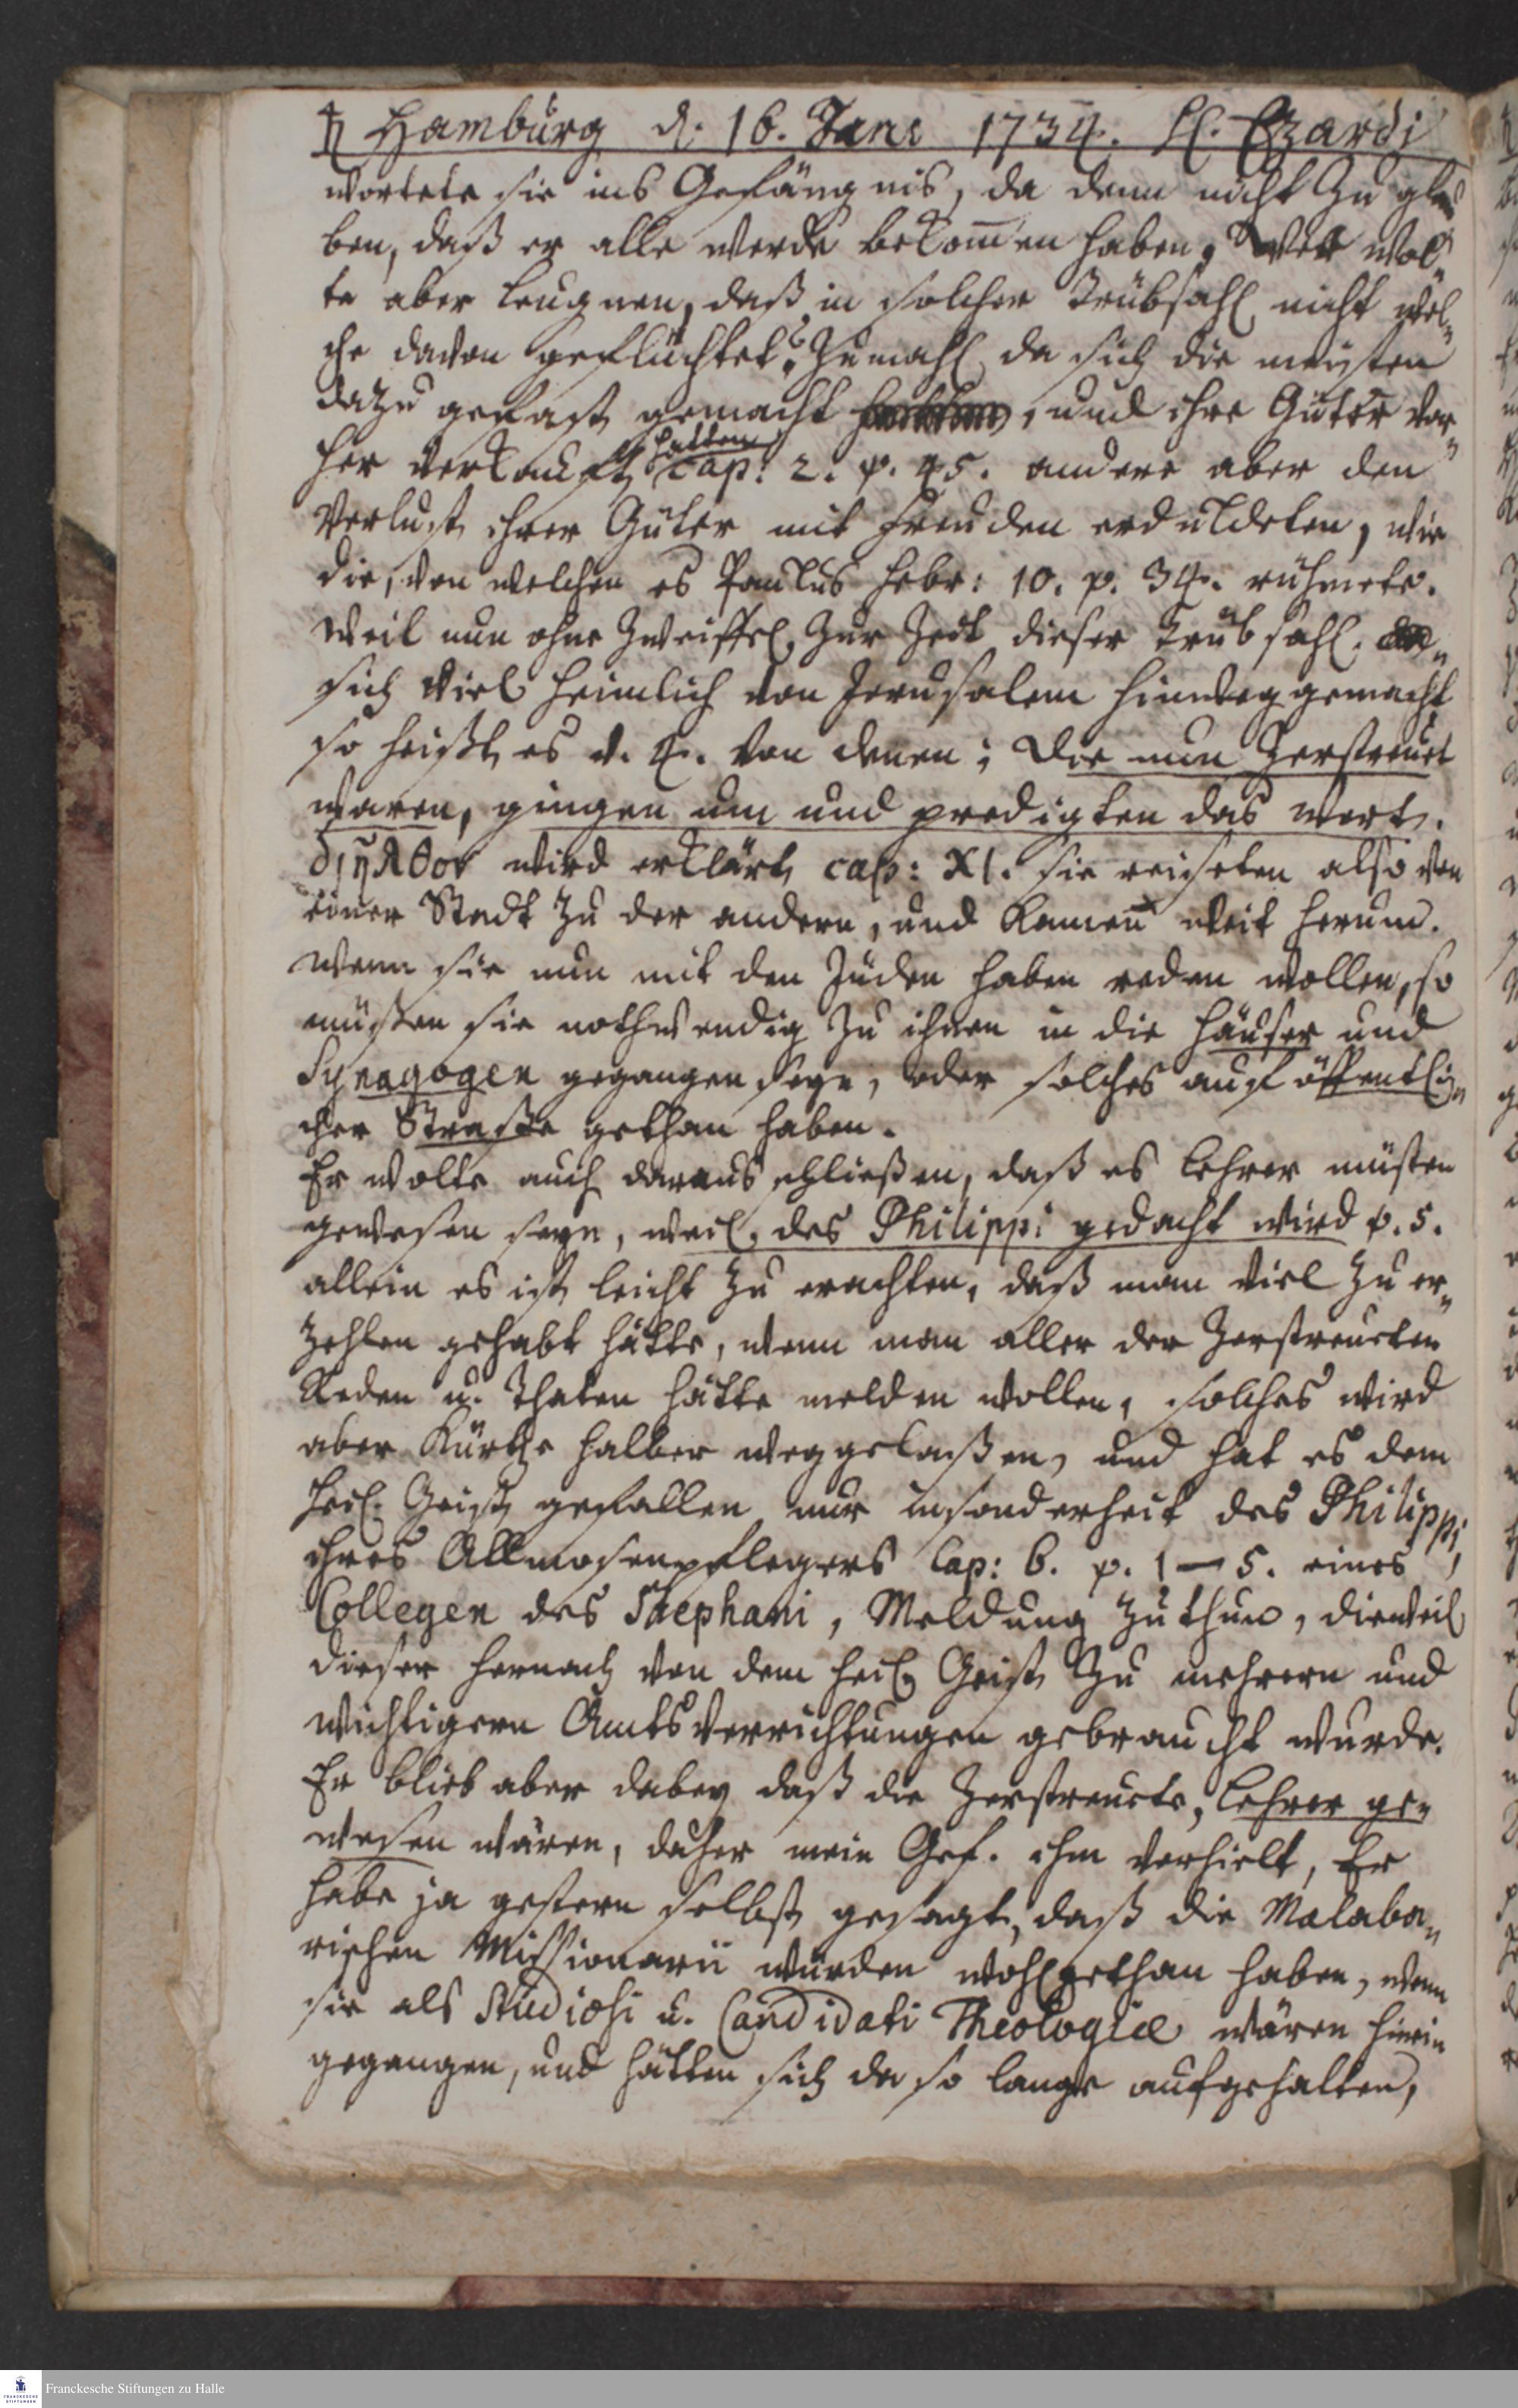 ♄ Hamburg d. 16. Jani 1734. H. Ezardi
wortete sie ins Gefängnis, da denn nicht zu glau
ben, daß er alle werde bekom̅en haben, Wer wol„
te aber leugnen, daß in solcher Trübsahl nicht wel„
che davon geflüchtet? Zumahl da sich die meisten
dazu gefast gemacht, und ihre Güter vor„
hatten
her verkauft cap: 2. v. 45. andere aber den
Verlust ihrer Güter mit Freuden erduldeten, wie
die, von welchen es Paulus Hebr: 10. v. 34. rühmete.
Weil nun ohne Zweiffel zur Zeit dieser Trübsahl
sich viel heimlich von Jerusalem hinweg gemacht
so heißt es v. 4. von denen: Die nun zerstreuet
waren, gingen um und predigten das wort.
διῆλθον wird erklärt cap: XI. sie reiseten also von
einer Stadt zu der andern, und kamen weit herum.
Wenn sie nun mit den Juden haben reden wollen, so
müßen sie nothwendig zu ihnen in die Häuser und
Synagogen gegangen seyn, oder solches auf öffentli„
cher Straße gethan haben.
Er wolte auch daraus schließen, daß es Lehrer müsten
gewesen seyn, weil des Philippi gedacht wird v. 5.
allein es ist leicht zu erachten, daß man viel zu er„
zehlen gehabt hätte, wenn man aller der Zerstreueten
Reden u. Thaten hätte melden wollen, solches wird
aber Kürtze halber weggelaßen, und hat es dem
Heil. Geist gefallen nur insonderheit des Philippi,
ihres Allmosenpflegers Cap: 6. v. 1–5. eines
Collegen des Stephani, Meldung zuthun, dieweil
dieser hernach von dem Heil. Geist zu mehrern und
wichtigern Amtsverrichtungen gebraucht wurde.
Er blieb aber dabey daß die Zerstreuete, Lehrer ge„
wesen wären, daher mein Gef. ihm verhielt, Er
habe ja gestern selbst gesagt, daß die Malaba„
rischen Missionarii würden wohlgethan haben, wenn
sie als Studiosi u. Candidati Theologiæ wären hinein
gegangen, und hätten sich da so lange aufgehalten,
Franckesche Stiftungen zu Halle